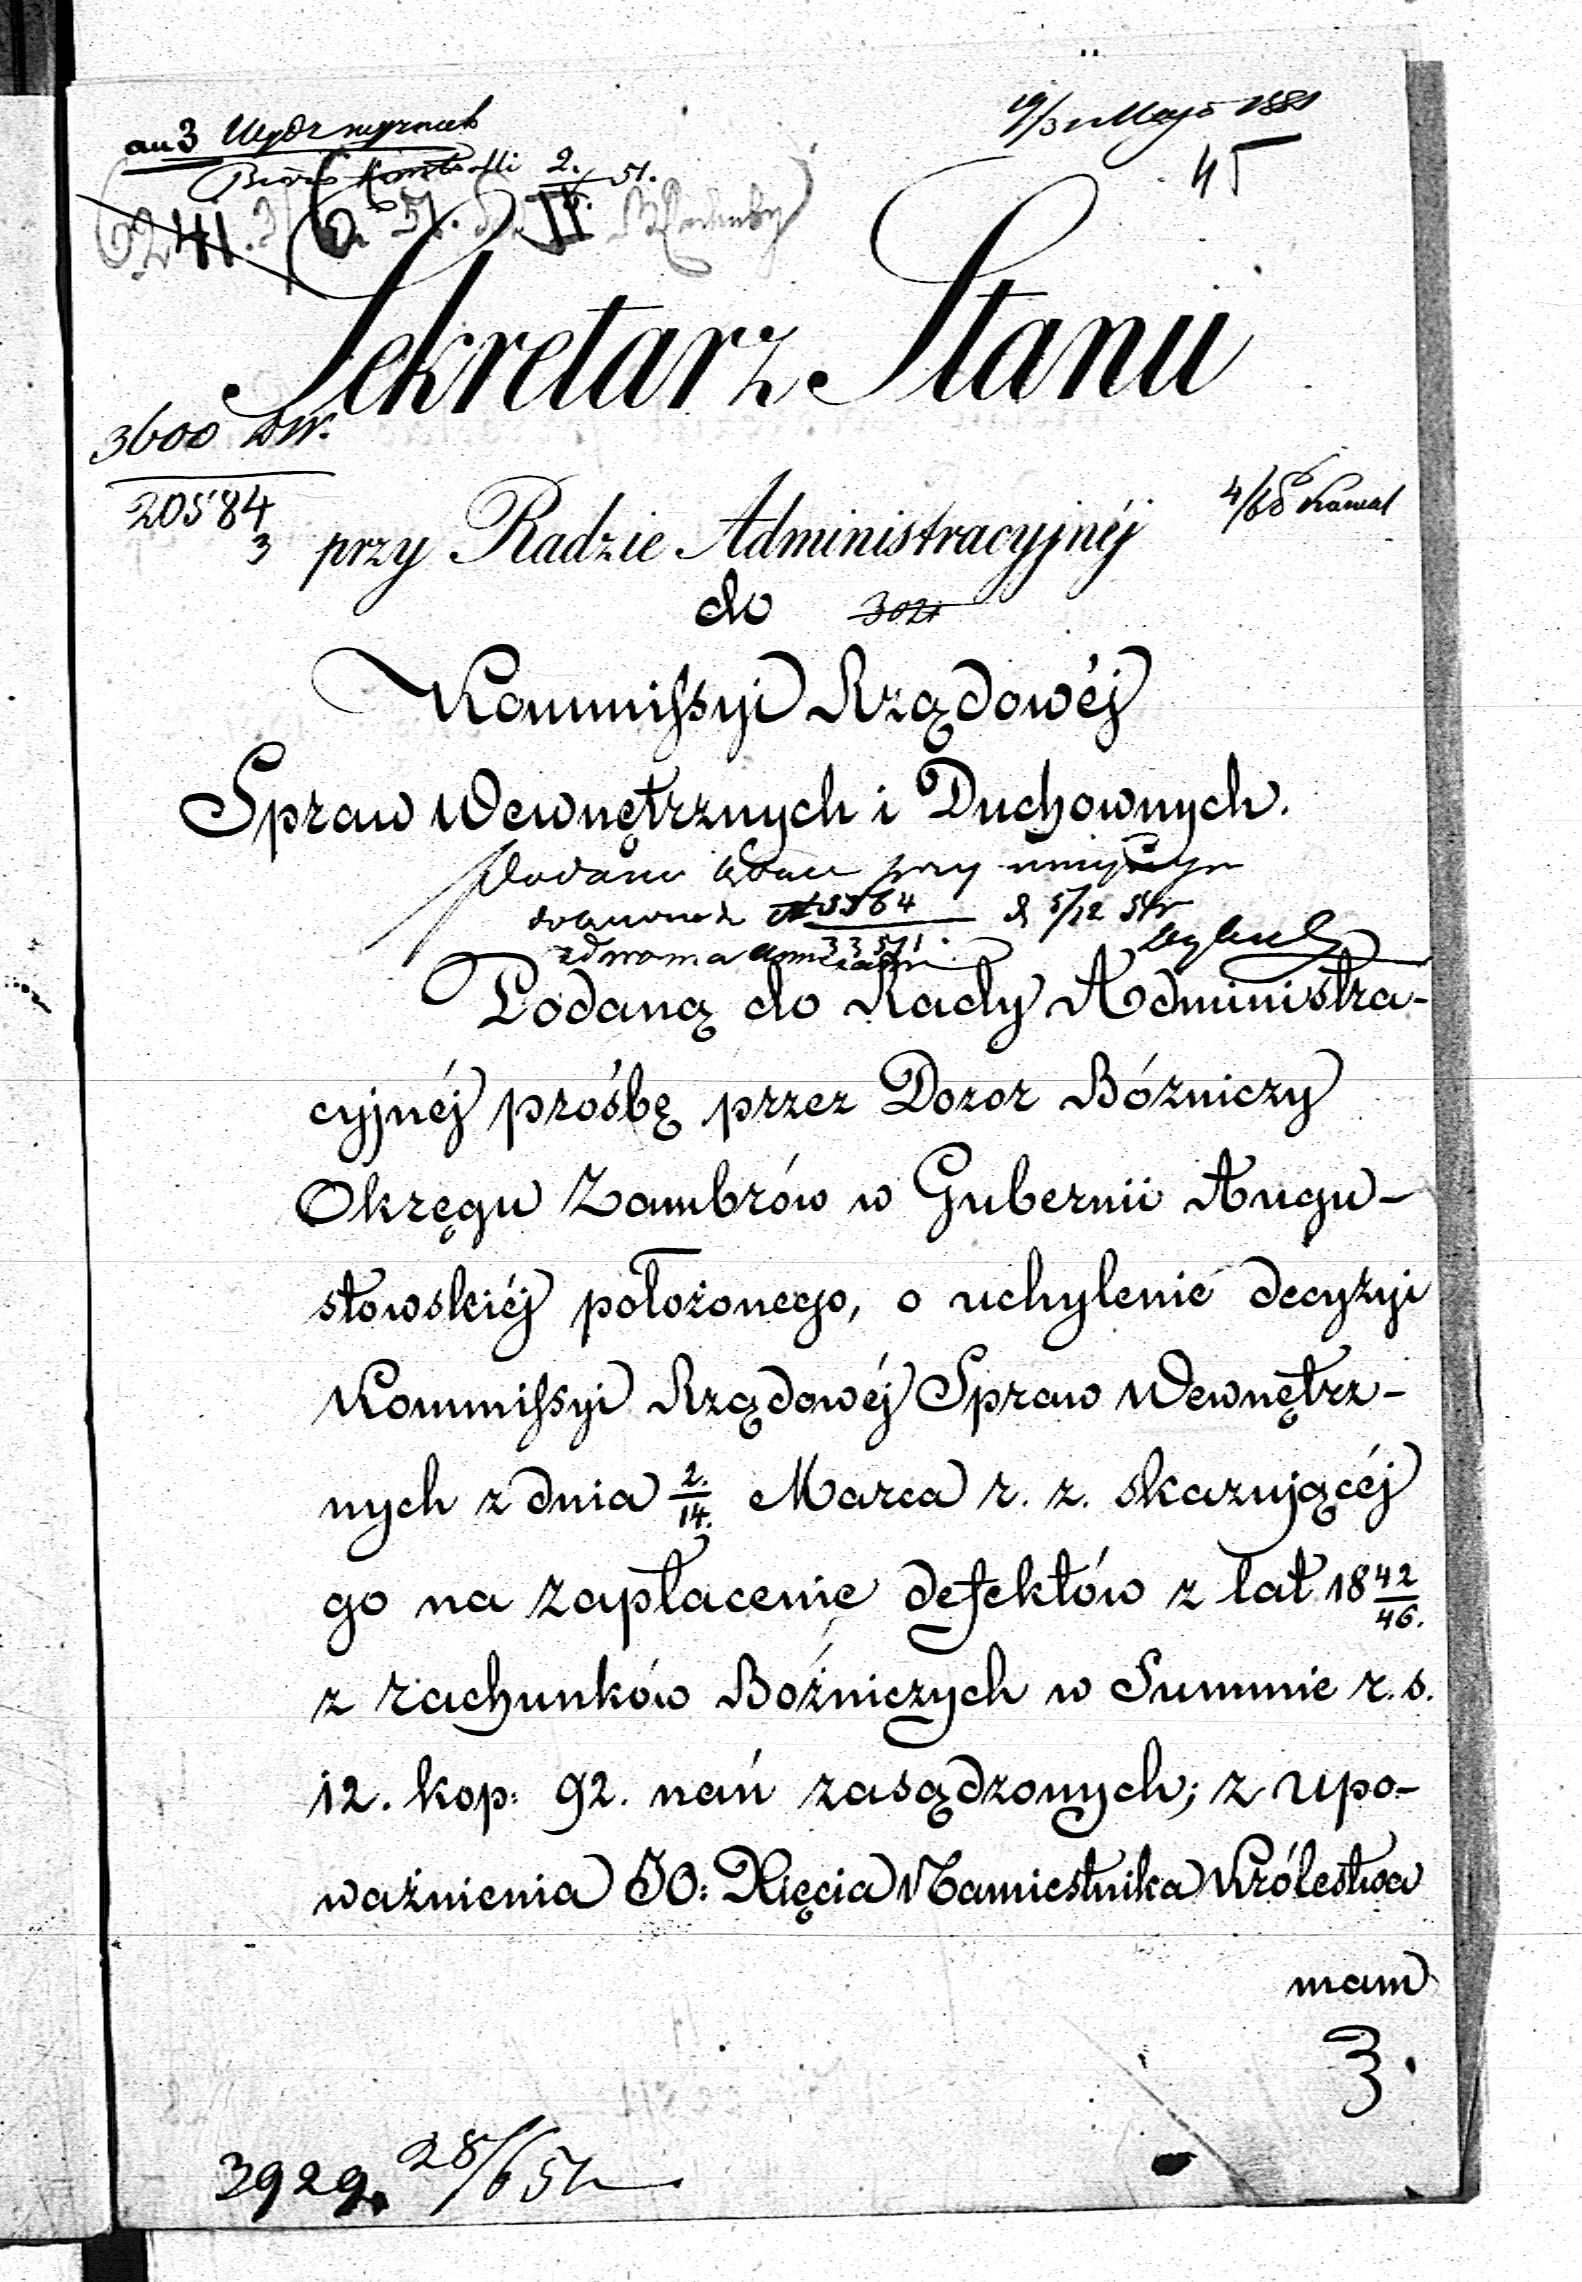 19/31 Maja 1851
45
Sekretarz Stanu
3600
20584
3
przy Radzie Administracyjnéj
do
Kommissyi Rządowéj
Spraw Wewnętrznych i Duchownych.
Podaną do Rady Administra-
cyjnéj prośbę przez Dozor Bóżniczy
Okręgu Zambrów w Gubernii Augu-
stowskiéj położonego, o uchylenie decyzyi
Kommissyi Rządowéj Spraw Wewnętrz-
nych z dnia 2./14. Marca r. z. skazującéj
go na zapłacenie defektów z lat 1842/46.
z rachunków Bóżniczych w Summie r. s.
12. kop: 92. nań zasądzonych; z upo-
ważnienia JO: Xięcia Namiestnika Królestwa
mam
3.
3929. 28/6 51